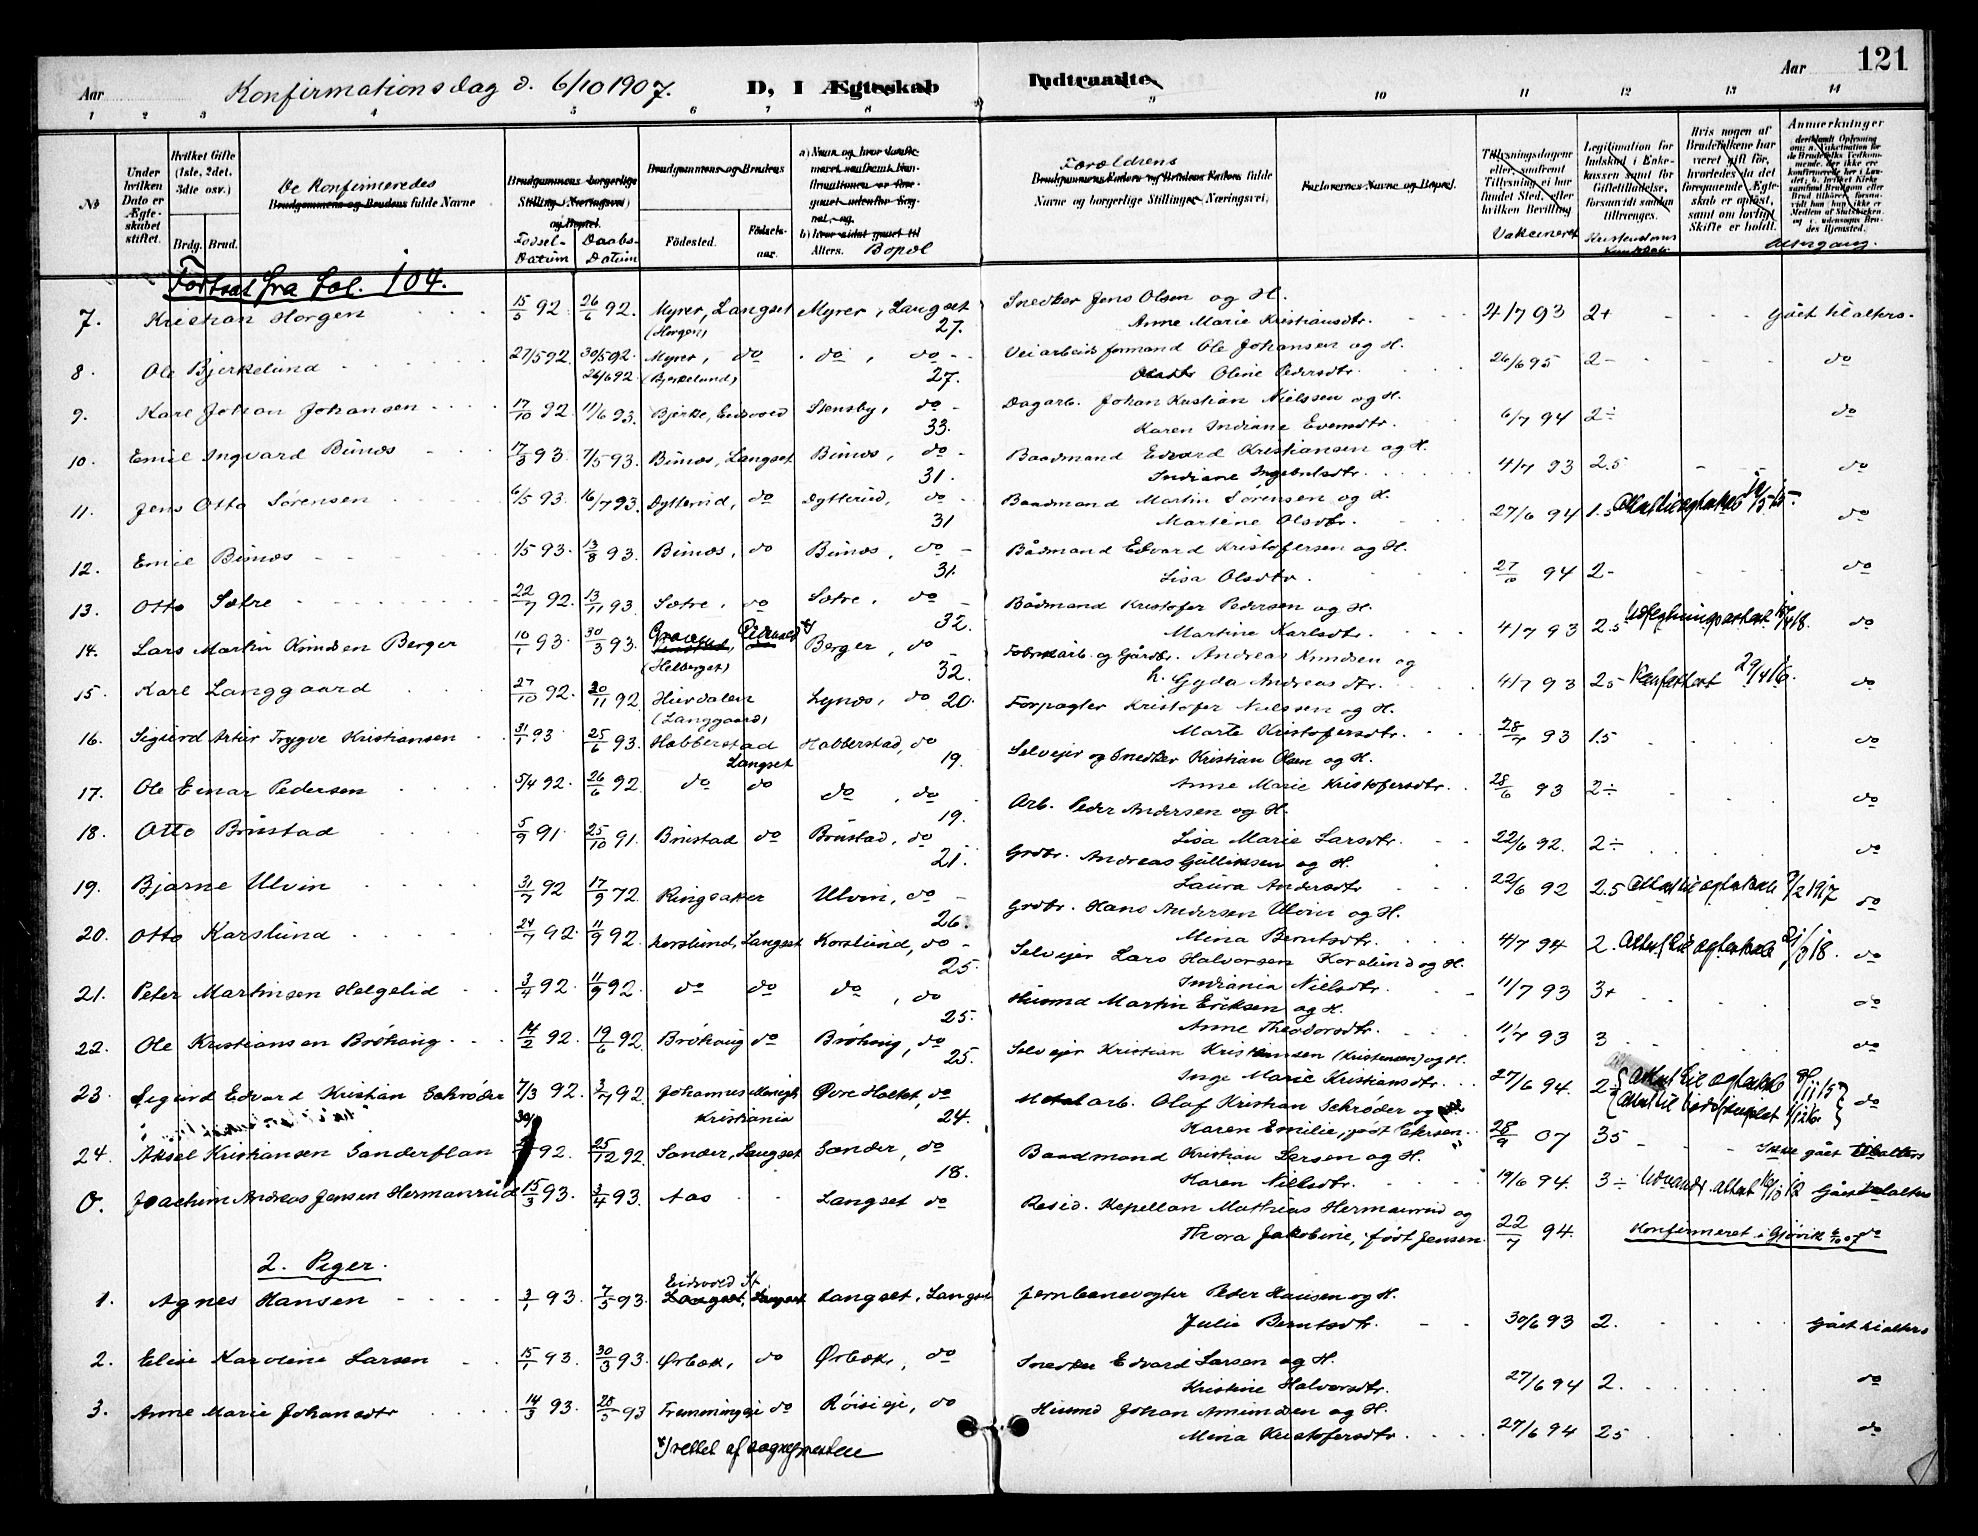 121
Aar
Konfirmationsdag d. 6/10 1907.
D, I Ægteskab
Indtraadte
Aar
1 2 3 4 5 6 7 8 9 10 11 12 13 14
No
Under hvilken Dato er Ægteskabet stiftet.
Hvilket Gifte (1ste, 2det, 3die osv.)
Brdg. Brud.
De Konfirmeredes
Brudgommens og Brudens fulde Navne
Brudgommens borgerlige Stilling (Næringsvei) og Bopæl.
Fødsel-Datum
Daabs-Datum
Brudgommens og Brudens
Fødested.
Fødselsaar.
Alters. Bopæl
Forældrens
Brudgommens Faders og Brudens Faders fulde Navne og borgerlige Stilling, Næringsvei,
Forlovernes Navne og Bopæl.
Tillysningsdagene eller, saafremt Tillysning ei har fundet Sted, efter hvilken Bevilling
Vakcineret
Legitimation for Indskud i Enkekassen samt for Giftetilladelse, forsaavidt saadan tiltrænges.
Kristendoms Kundskab
Hvis nogen af Brudefolkene har været gift før, hvorledes da det foregaaende Ægteskab er opløst, samt om lovligt Skifte er holdt.
Anmerkninger
Altergang.
Fortsat fra fol. 104.
7. Kristian Horgen 15/5 92 26/6 92. Myrer, Langset (Horgen) Myrer, Langset 27. Snedker Jens Olsen og H. Anne Marie Kristiansdtr. 4/7 93 2+ Gået til alters.
8. Ole Bjerkelund 27/5 92 30/5 92. 26/6 92 Myrer, do (Bjerkelund) do, do 27. Veiarbeids formand Ole Johansen og H. Oline Pedersdtr. 26/6 95 2- do
9. Karl Johan Johansen 17/10 92 11/6 93. Bjerke, Eidsvold Stensby, do 33. Dagarb. Johan Kristian Nielssen og H. Karen Indiane Evensdtr. 6/7 94 2÷ do
10. Emil Ingvard Bunæs 17/3 93 7/5 93. Bunæs, Langset Bunæs, do 31. Baadmand Edvard Kristiansen og H. Indiane Ingebretsdtr. 4/7 93 2.5 do
11. Jens Otto Sørensen 6/5 93. 16/7 93 Dytterud, do Dytterud, do 31 Baadmand Martin Sørensen og H. Martine Olsdtr. 27/6 94 1.5 do
12. Emil Bunæs 1/5 93. 13/8 93. Bunæs, do Bunæs, do 31. Bådmand Edvard Kristofersen og H. Lisa Olsdtr. 27/10 94 2- do
13. Otto Sætre 22/7 92. 13/11 93 Sætre, do Sætre, do 32. Bådmand Kristofer Pedersen og H. Martine Karlsdtr. 4/7 93 2.5 do
14. Lars Martin Knudsen Berger 10/1 93 30/3 93. (Helberget) Berger, do 32. Fabrikarb. og Gårdbr. Andreas Knudsen og h. Gyda Andreasdtr. 4/7 93 25 do
15. Karl Langgaard 27/10 92. 20/11 92 Hurdalen (Langgaard) Lynæs, do 20. Forpagter Kristofer Nielssen og H. Marte Kristofersdtr. 28/7 93 1.5 do
16. Sigurd Artur Trygve Kristiansen 31/1 93 25/6 93. Habberstad Langset Habberstad, do 19. Selveier og Snedker Kristian Olsen og H. Anne Marie Kristofersdtr. 28/6 93 2÷ do
17. Ole Einar Pedersen 5/4 92. 26/6 92 do do do, do 19. Arb. Peder Andersen og H. Lisa Marie Larsdtr. 22/6 92. 2÷ do
18. Otto Brustad 5/9 91. 25/10 91. Brustad do Brustad, do 21. Grdbr. Andreas Gulliksen og H. Laura Andersdtr. 22/6 92 2.5 Attest til ægteskab 9/2 1917 do
19. Bjarne Ulvin 31/7 92 17/9 72. Ringsaker Ulvin, do 26. Grdbr. Hans Andersen Ulvin og H. Mina Berntsdtr. 4/7 94 2. Attest til ægteskab do
20. Otto Karslund 24/7 92. 11/9 92. Korslund, Langset Korslund, do 25. Selveier Lars Halvorsen Korslund og H. Indiania Nielsdtr. 11/7 93 3+ do
21. Peter Martinsen Helgelid 3/4 92. 11/9 92. do do do, do 25. Husmd Martin Eriksen og H. Anne Theodorsdtr. 11/7 93 3 do
22. Ole Kristiansen Bröhaug 14/2 92. 19/6 92. Bröhaug do Bröhaug, do 25. Selveier Kristian Kristiansen (Kristensen) og H. Inge Marie Kristiansdtr. 27/6 94.
23. Sigurd Edvard Kristian Schrøder 7/3 92. 3/7 92. Johannes Menigh. Kristiania Øvre Holtet, do 24. Metalarb. Olaf Kristian Schrøder og Karen Emilie, født Petersen 28/9 07 35 do
24. Aksel Kristiansen Sanderflan 92. 25/12 92. Sander, Langset Sander, do 18. Baadmand Kristian Larsen og H. Karen Nielsdtr. 19/6 94. 3÷ Ikke gået til alters
0. Joachim Andreas Jensen Hermanrud 15/3 93. 3/4 93. Aas Langset do Resid. Kapellan Mathias Hermanrud og Thora Jakobine, født Jensen 22/7 94. Konfirmeret i Gjøvik do
2. Piger.
1. Agnes Hansen 3/1 93. 7/5 93. Eidsvold St. Langset, Langset Langset, Langset Jernbanevogter Peter Hansen og H. Julie Berntsdtr. 30/6 93 2. Gået til alters
2. Elise Karoline Larsen 15/1 93. 30/3 93. Ørbæk, do Ørbæk, do Snedker Edvard Larsen og H. Kristine Halvorsdtr. 27/6 94 2. do
3. Anne Marie Johansdtr 14/3 93. 28/5 93 Fremmingeie do Röisieie, do Husmd Johan Amundsen og H. Mina Kristofersdtr 27/6 94 25 do
*) rettet af sognepresten